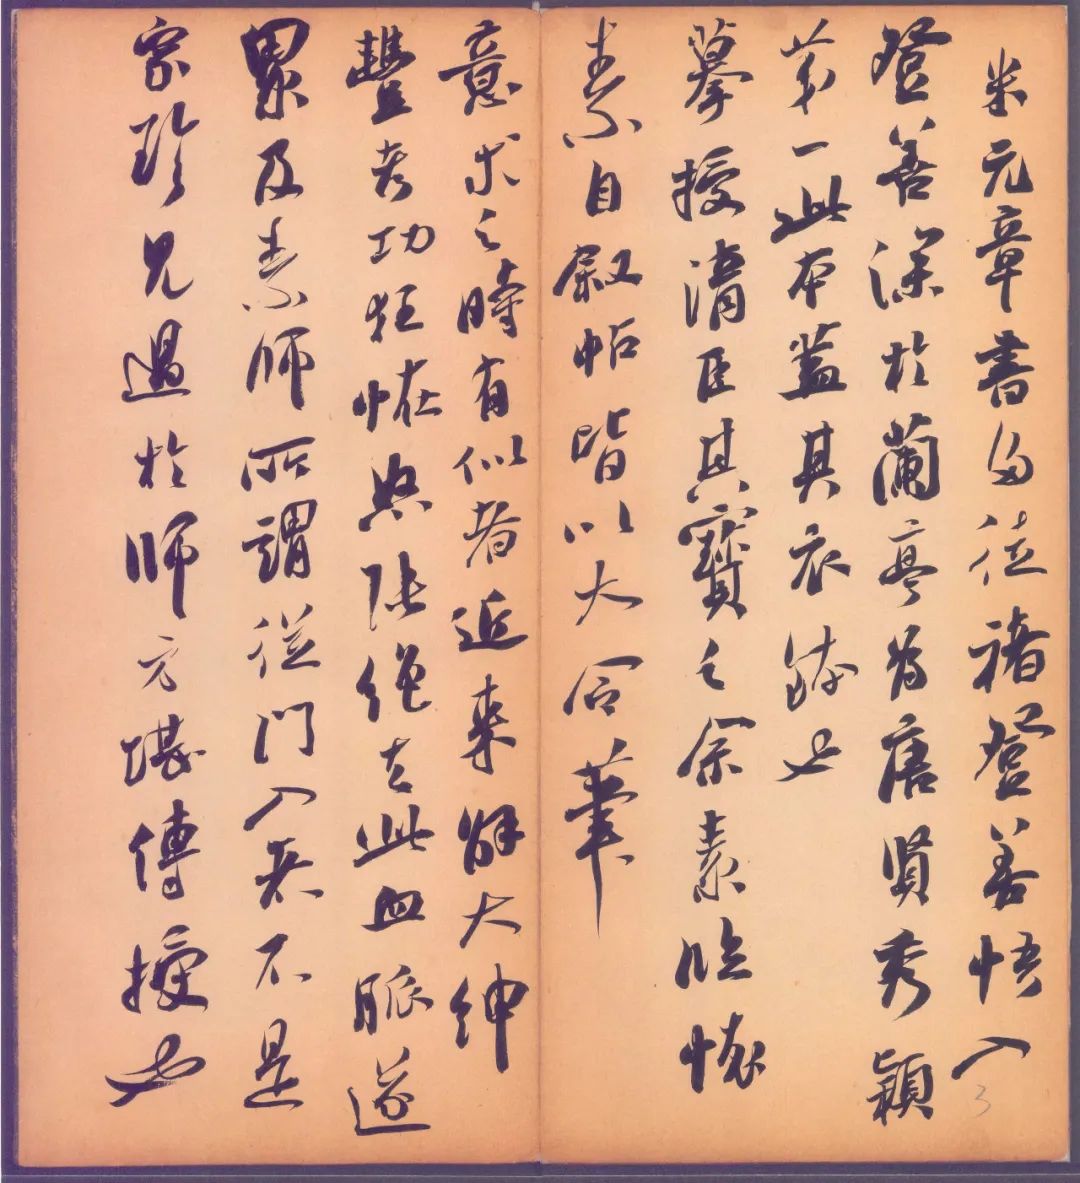 米元章書多從褚登善悟入
登善深於蘭亭為唐賢秀穎
第一此本蓋其衣鉢也
摹授清臣其寶之余素臨懷
素自叙帖皆以大令筆
意求之時有似者近來解大紳
豐考功狂怪怒張絕去此血脈遂
累及素師所謂從門入者不是
家珍見過於師方堪傳授也
3